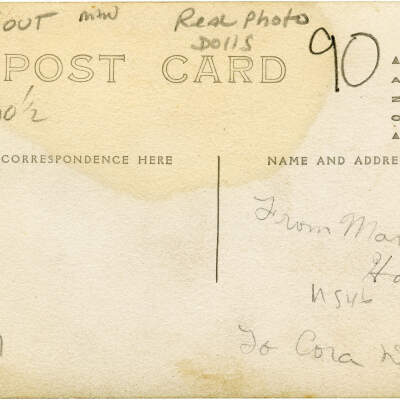 OUT mim Real Photo
Dolls
90
POST CARD
0½
CORRESPONDENCE HERE
NAME AND ADDRE
From Mar
Ha
To Cora